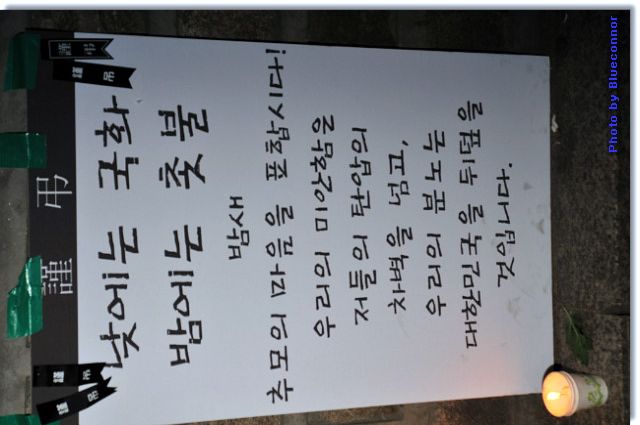 謹 弔
낮에는 국화
밤에는 촛불
밤새
추모의 마음을 표합시다!
우리의 미안함을
저들의 탄압의
차벽을 넘고,
우리의 분노는
대한민국을 뒤덮을
것입니다.
謹 弔
謹 弔
謹 弔
謹 弔
Photo by Blueconnor